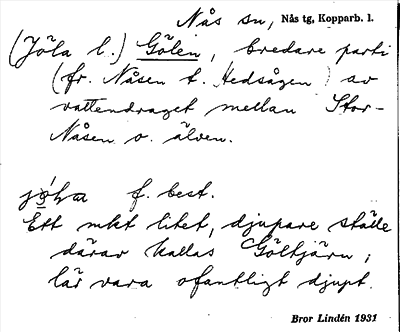 Nås sn, Nås tg, Kopparb. l.
(Jöla l.) Gölen, bredare parti
(fr. Nåsen t. Hedsågen) av
vattendraget mellan Stor-
Nåsen o. älven.
f. best.
Ett mkt litet, djupare ställe
därav kallas Göltjärn;
lär vara ofantligt djupt.
Bror Lindén 1931